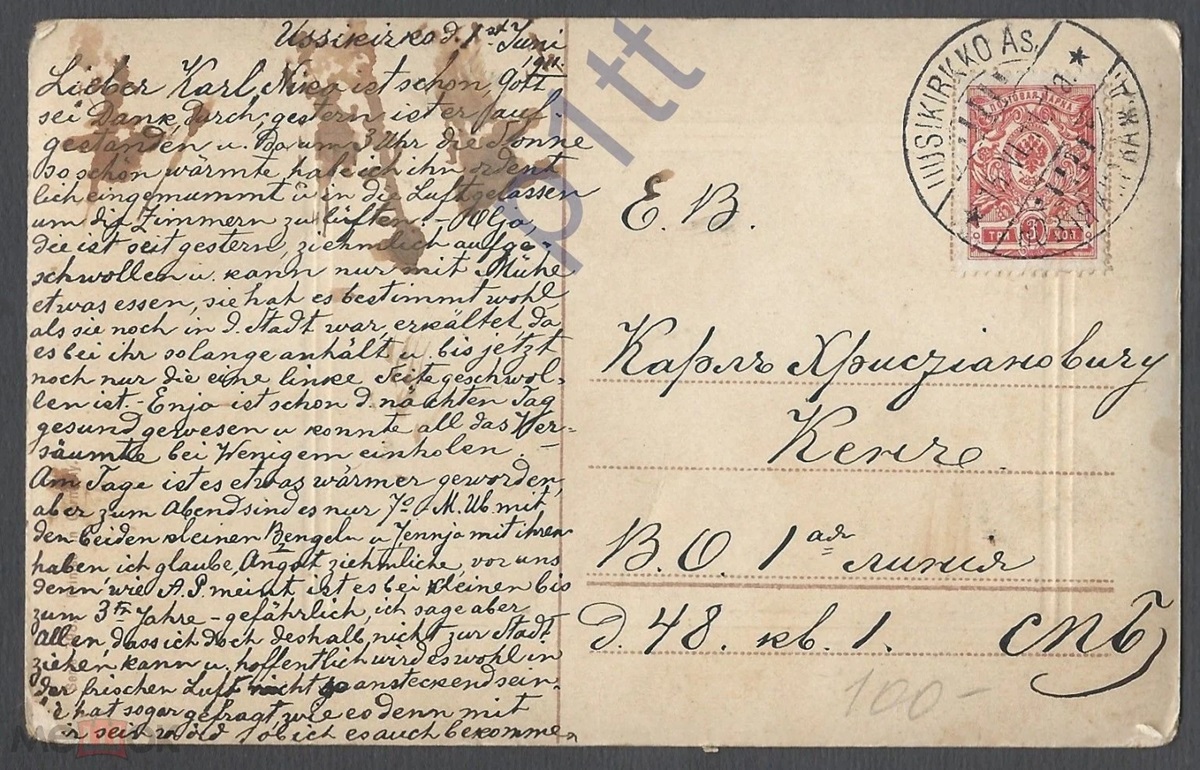 Ussikirko d. 1st Juni
1911.
Lieber Karl, Nico ist schon, Gott
sei Dank, durch, gestern ist er auf-
gestanden u. Darum 3 Uhr die Sonne
so schön wärmte, habe ich ihn ordent
lich eingemummt u in die Luft gelassen
um die Zimmern zu lüften. - Olja,
die ist seit gestern, ziehmlich aufge-
schwollen u. kann nur mit Mühe
etwas essen, sie hat es bestimmt wohl,
als sie noch in d. Stadt war, erkältet, da
es bei ihr so lange anhält u. bis jetzt
noch nur die eine linke Seite geschwol-
len ist. - Enja ist schon d. nächten Tag
gesund gewesen u konnte all das Ver-
säumte bei Wenigem einholen. -
Am Tage ist es etwas wärmer geworden,
aber zum Abend sind es nur 7° M. Ub. mit
den beiden kleinen Bengeln u Jennja mit ihren
haben ich glaube, Angst ziehmliche vor uns
denn wie A.P. meint ist es bei kleinen bis
zum 3ten Jahre - gefährlich, ich sage aber
Allen, dass ich doch deshalb, nicht zur Stadt
ziehen kann u. hoffentlich wird es wohl in
der frischen Luft nicht so ansteckend sein.
hat sogar gefragt, wie es denn mit
sein ob ich es auch bekomme
Е. В.
Карлъ Христіановичу
Кенче.
В.О. 1ая линия
д. 48. кв. 1. СПБ
100-
UUSIKIRKKO As.
ПОЧТОВАЯ МАРКА
ТРИ 3 КОП
pltt